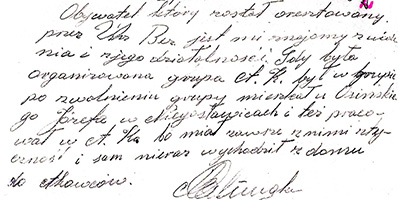 Obywatel który został aresztowany
przez Urz Bez. jest mi znajomy z widze
nia i z jego działalności. Gdy była
organizowana grupa A. K. był w grupie
po zwolnieniu grupy mieszkał u Osińskie
go Józefa w i też praco
wał w A. K. bo miał zawsze z nimi sty
czność i sam nieraz wychodził z domu
do Akowców.